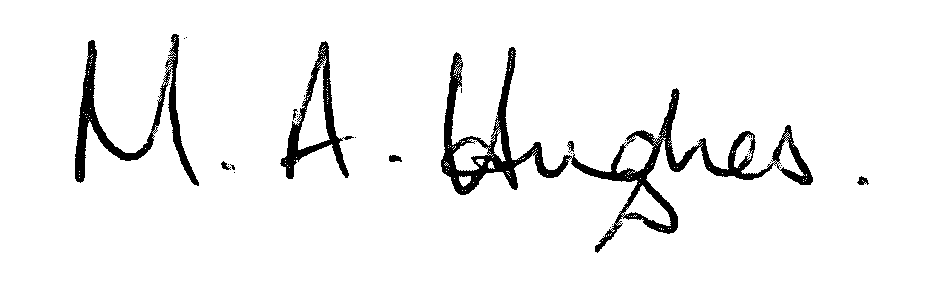 M. A. Hughes.